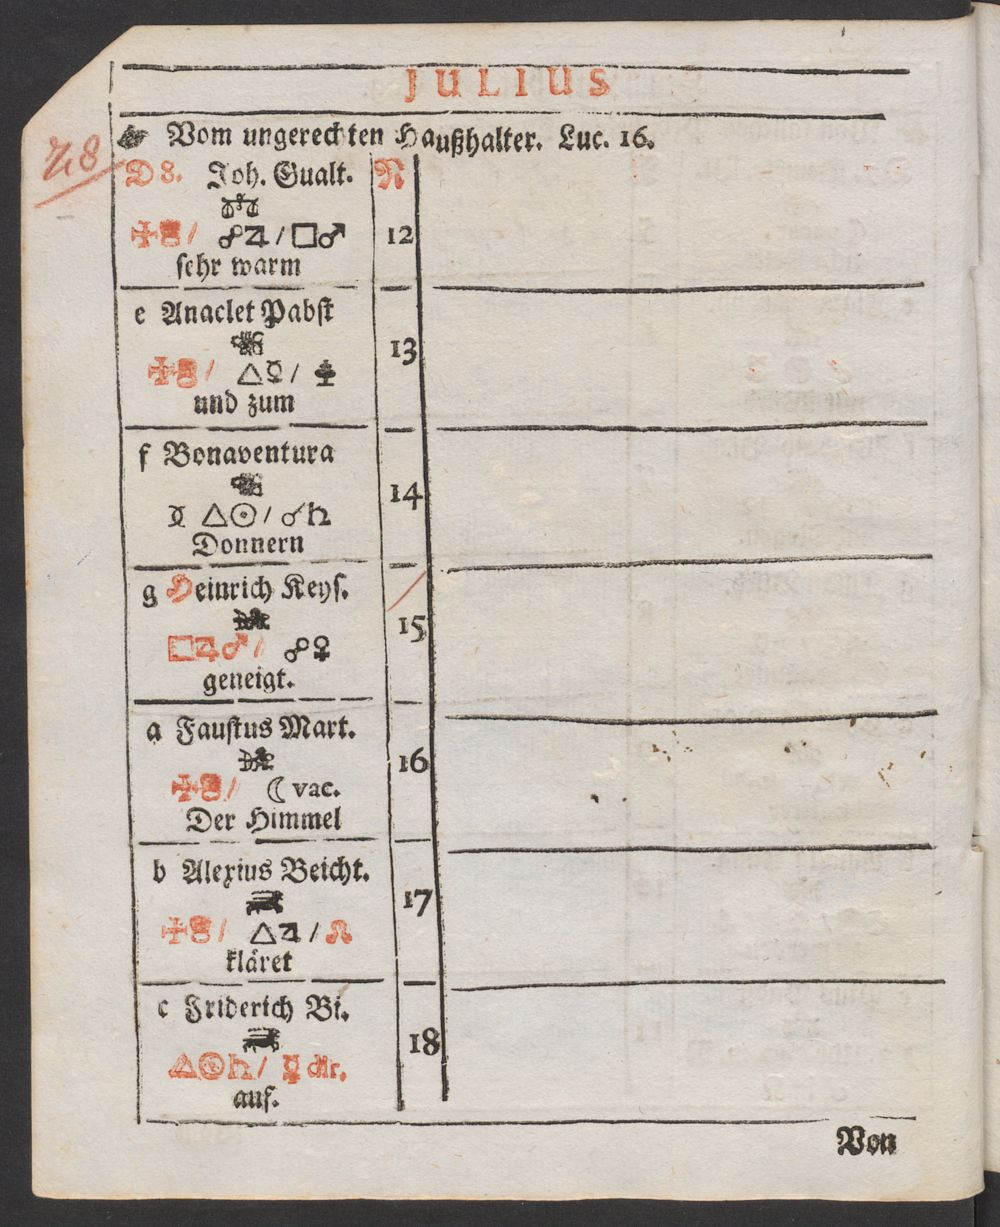 JULIUS
Vom ungerechten Haußhalter. Luc. 16.
D 8. Joh. Gualt. N
☍♃ / □♂ 12
sehr warm
e Anaclet Pabst
△☿ / 13
und zum
f Bonaventura
△☉ / ☌♄ 14
Donnern
g Heinrich Keys.
□♃♂ / ☍♀ 15
geneigt.
a Faustus Mart.
☾ vac. 16
Der Himmel
b Alexius Beicht.
△♃ / ☊ 17
kläret
c Friderich Bi.
△☉♄ / ☿ dir. 18
auf.
Von